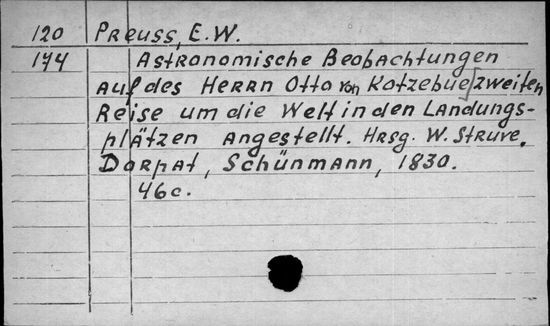 120 Preuss, E. W.
174 Astronomische Beobachtungen
auf des Herrn Otto von Kotzebue zweiten
Reise um die Welt in den Landungs-
plätzen angestellt. Hrsg. W. Struve.
Dorpat, Schünmann, 1830.
46c.